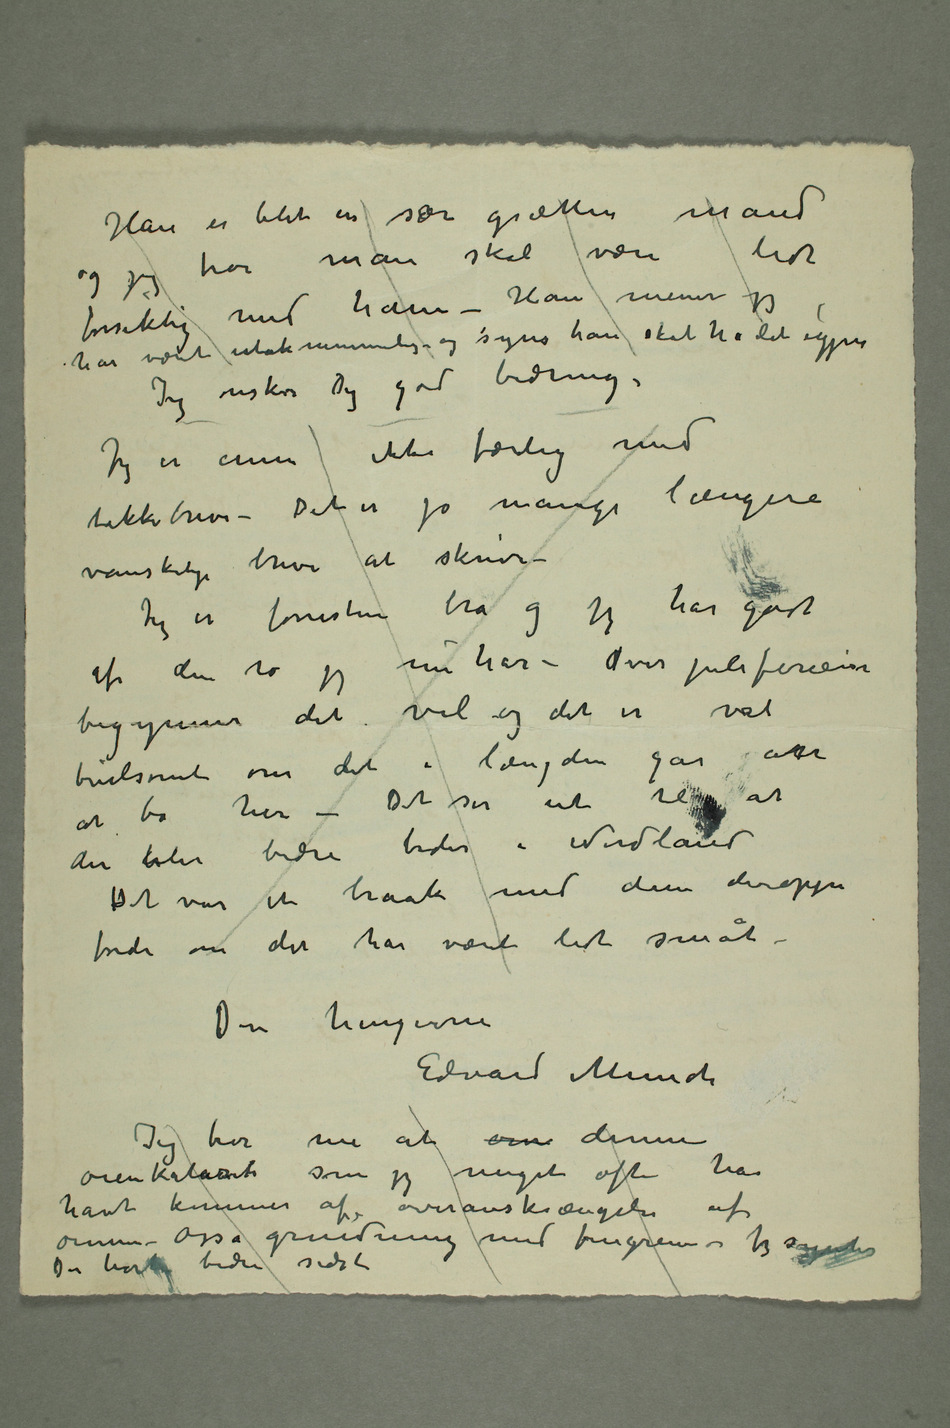 Han er blet en sær grætten mand
og jeg tror man skal være lidt
forsiktig med ham – Han mener jeg
har været utaknemmelig – og synes han skal ha det igjen
Jeg ønsker Dig god bedring.
Jeg er ennu ikke færdig med
takkebreve – Det er jo mange længere
vanskelige breve at skrive –
Jeg er forresten bra og jeg har godt
af den ro jeg nu har – Over juleferien
begynner det vel og det er vel
tvilsomt om det i længden går an
at bo her – Det ser ut til at
der blir bedre tider i Nordland
Det var et braak med dem deroppe
fordi om det har været lidt småt –
Din hengivne
Edvard Munch
Jeg tror nu at om denne
øienkatarrh som jeg meget ofte har
havt kommer af overanstrængelse af
øinene – Også gnidning med fingrene – Jeg synes
Du bedre sidst